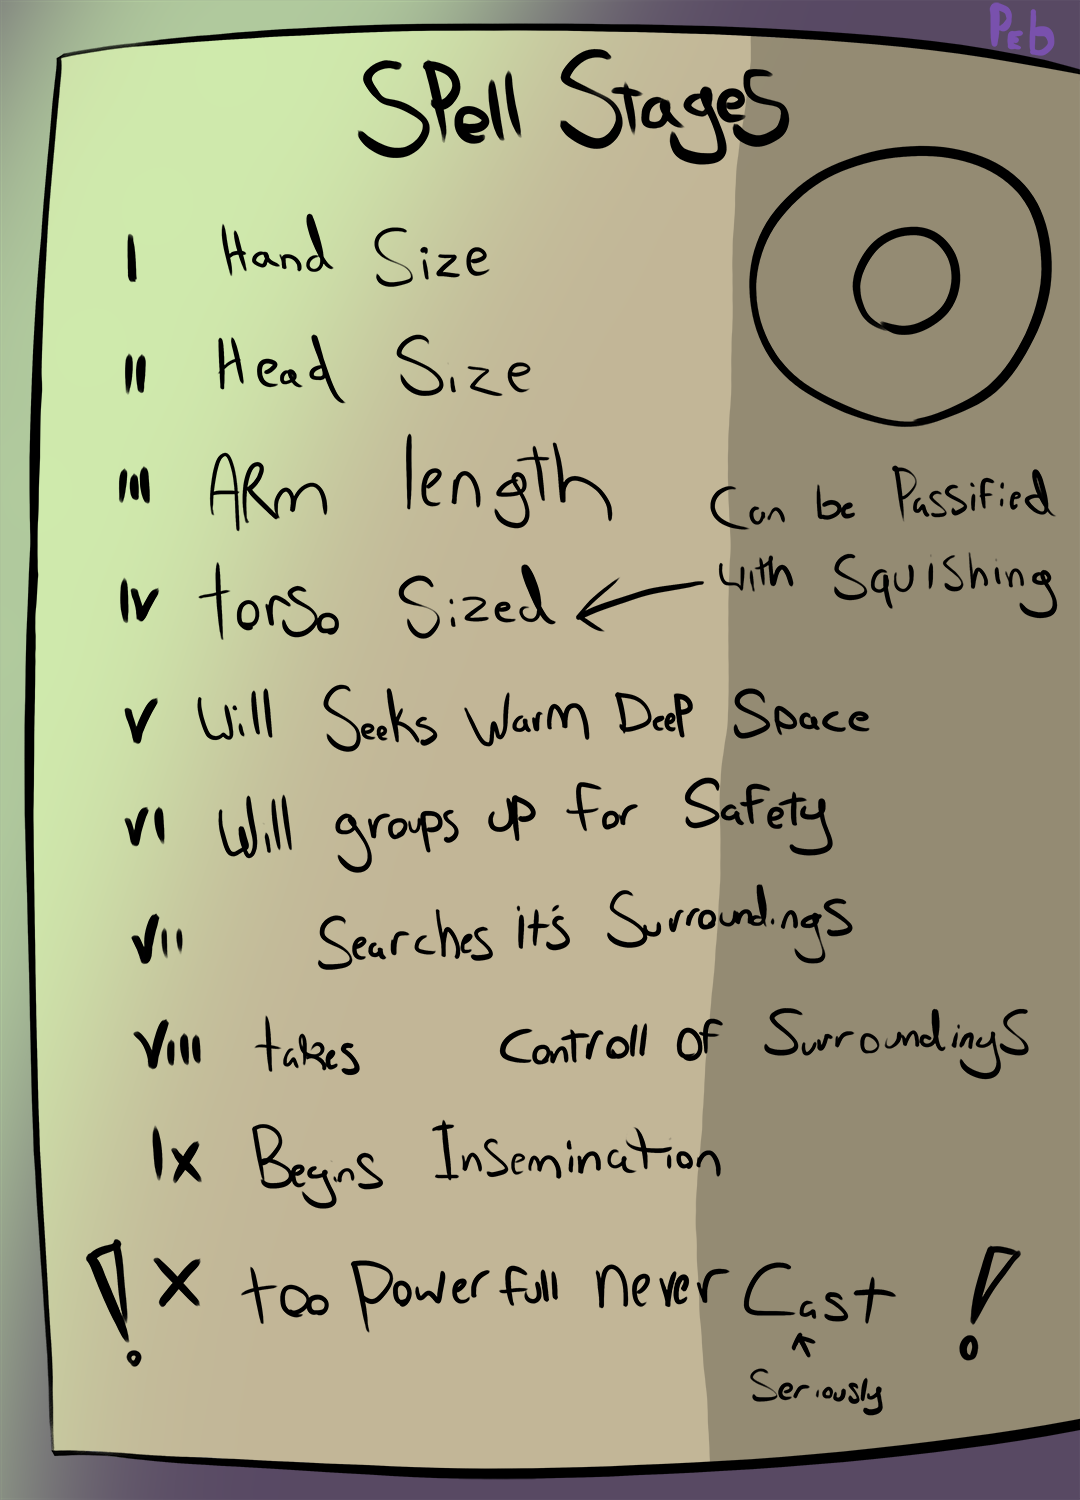 Peb
Spell Stages
I Hand Size
II Head Size
III ARm length
IV torso Sized
Can be Passified
with Squishing
V Will Seeks Warm Deep Space
VI Will groups up for Safety
VII Searches it's Surroundings
VIII takes Controll of Surroundings
IX Begins Insemination
! X too Powerfull never Cast !
Seriously